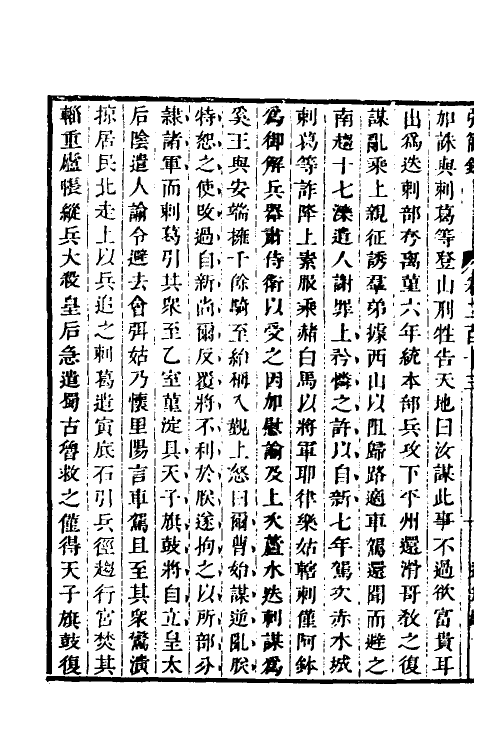 加誅與剌葛等登山刑牲告天地曰汝謀此事不過欲富貴耳
出爲迭剌部夷离菫六年統本部兵攻下平州還滑哥教之復
謀亂乘上親征誘羣弟據西山以阻歸路適車駕還聞而避之
南趨十七濼遣人謝罪上矜憐之許以自新七年駕次赤水城
剌葛等詐降上素服乘赭白馬以將軍耶律樂姑轄剌僅阿鉢
爲御解兵器肅侍衛以受之因加慰諭及上次蘆水迭剌謀爲
奚王與安端擁千餘騎至紿稱入覲上怒曰爾曹始謀逆亂朕
特恕之使改過自新尚爾反覆將不利於朕遂拘之以所部分
隸諸軍而剌葛引其衆至乙室菫淀具天子旗鼓將自立皇太
后陰遣人諭令避去會弭姑乃懷里陽言車駕且至其衆驚潰
掠居民北走上以兵追之剌葛遣寅底石引兵徑趨行宮焚其
輜重廬帳縱兵大殺皇后急遣蜀古魯救之僅得天子旗鼓復